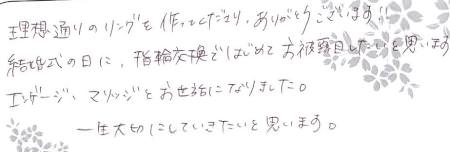 理想通りのリングを作ってくださり、ありがとうございます!!
結婚式の日に、指輪交換ではじめてお披露目したいと思います
エンゲージ、マリッジとお世話になりました。
一生大切にしていきたいと思います。